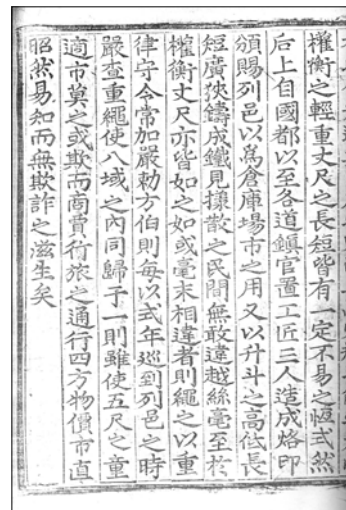 權衡之輕重丈尺之長短皆有一定不易之恒式然
后上自國都以至各道鎮官置工匠三人造成烙印
頒賜列邑以爲倉庫場市之用又以升斗之高低長
短廣狹鑄成鐵見攘散之民間無敢違越絲毫至於
權衡丈尺亦皆如之如或毫末相違者則繩之以重
律守令常加嚴勅方伯則每以式年巡到列邑之時
嚴查重繩使八域之內同歸于一則雖使五尺之童
適市莫之或欺而商賈行旅之通行四方物價市直
昭然易知而無欺詐之滋生矣